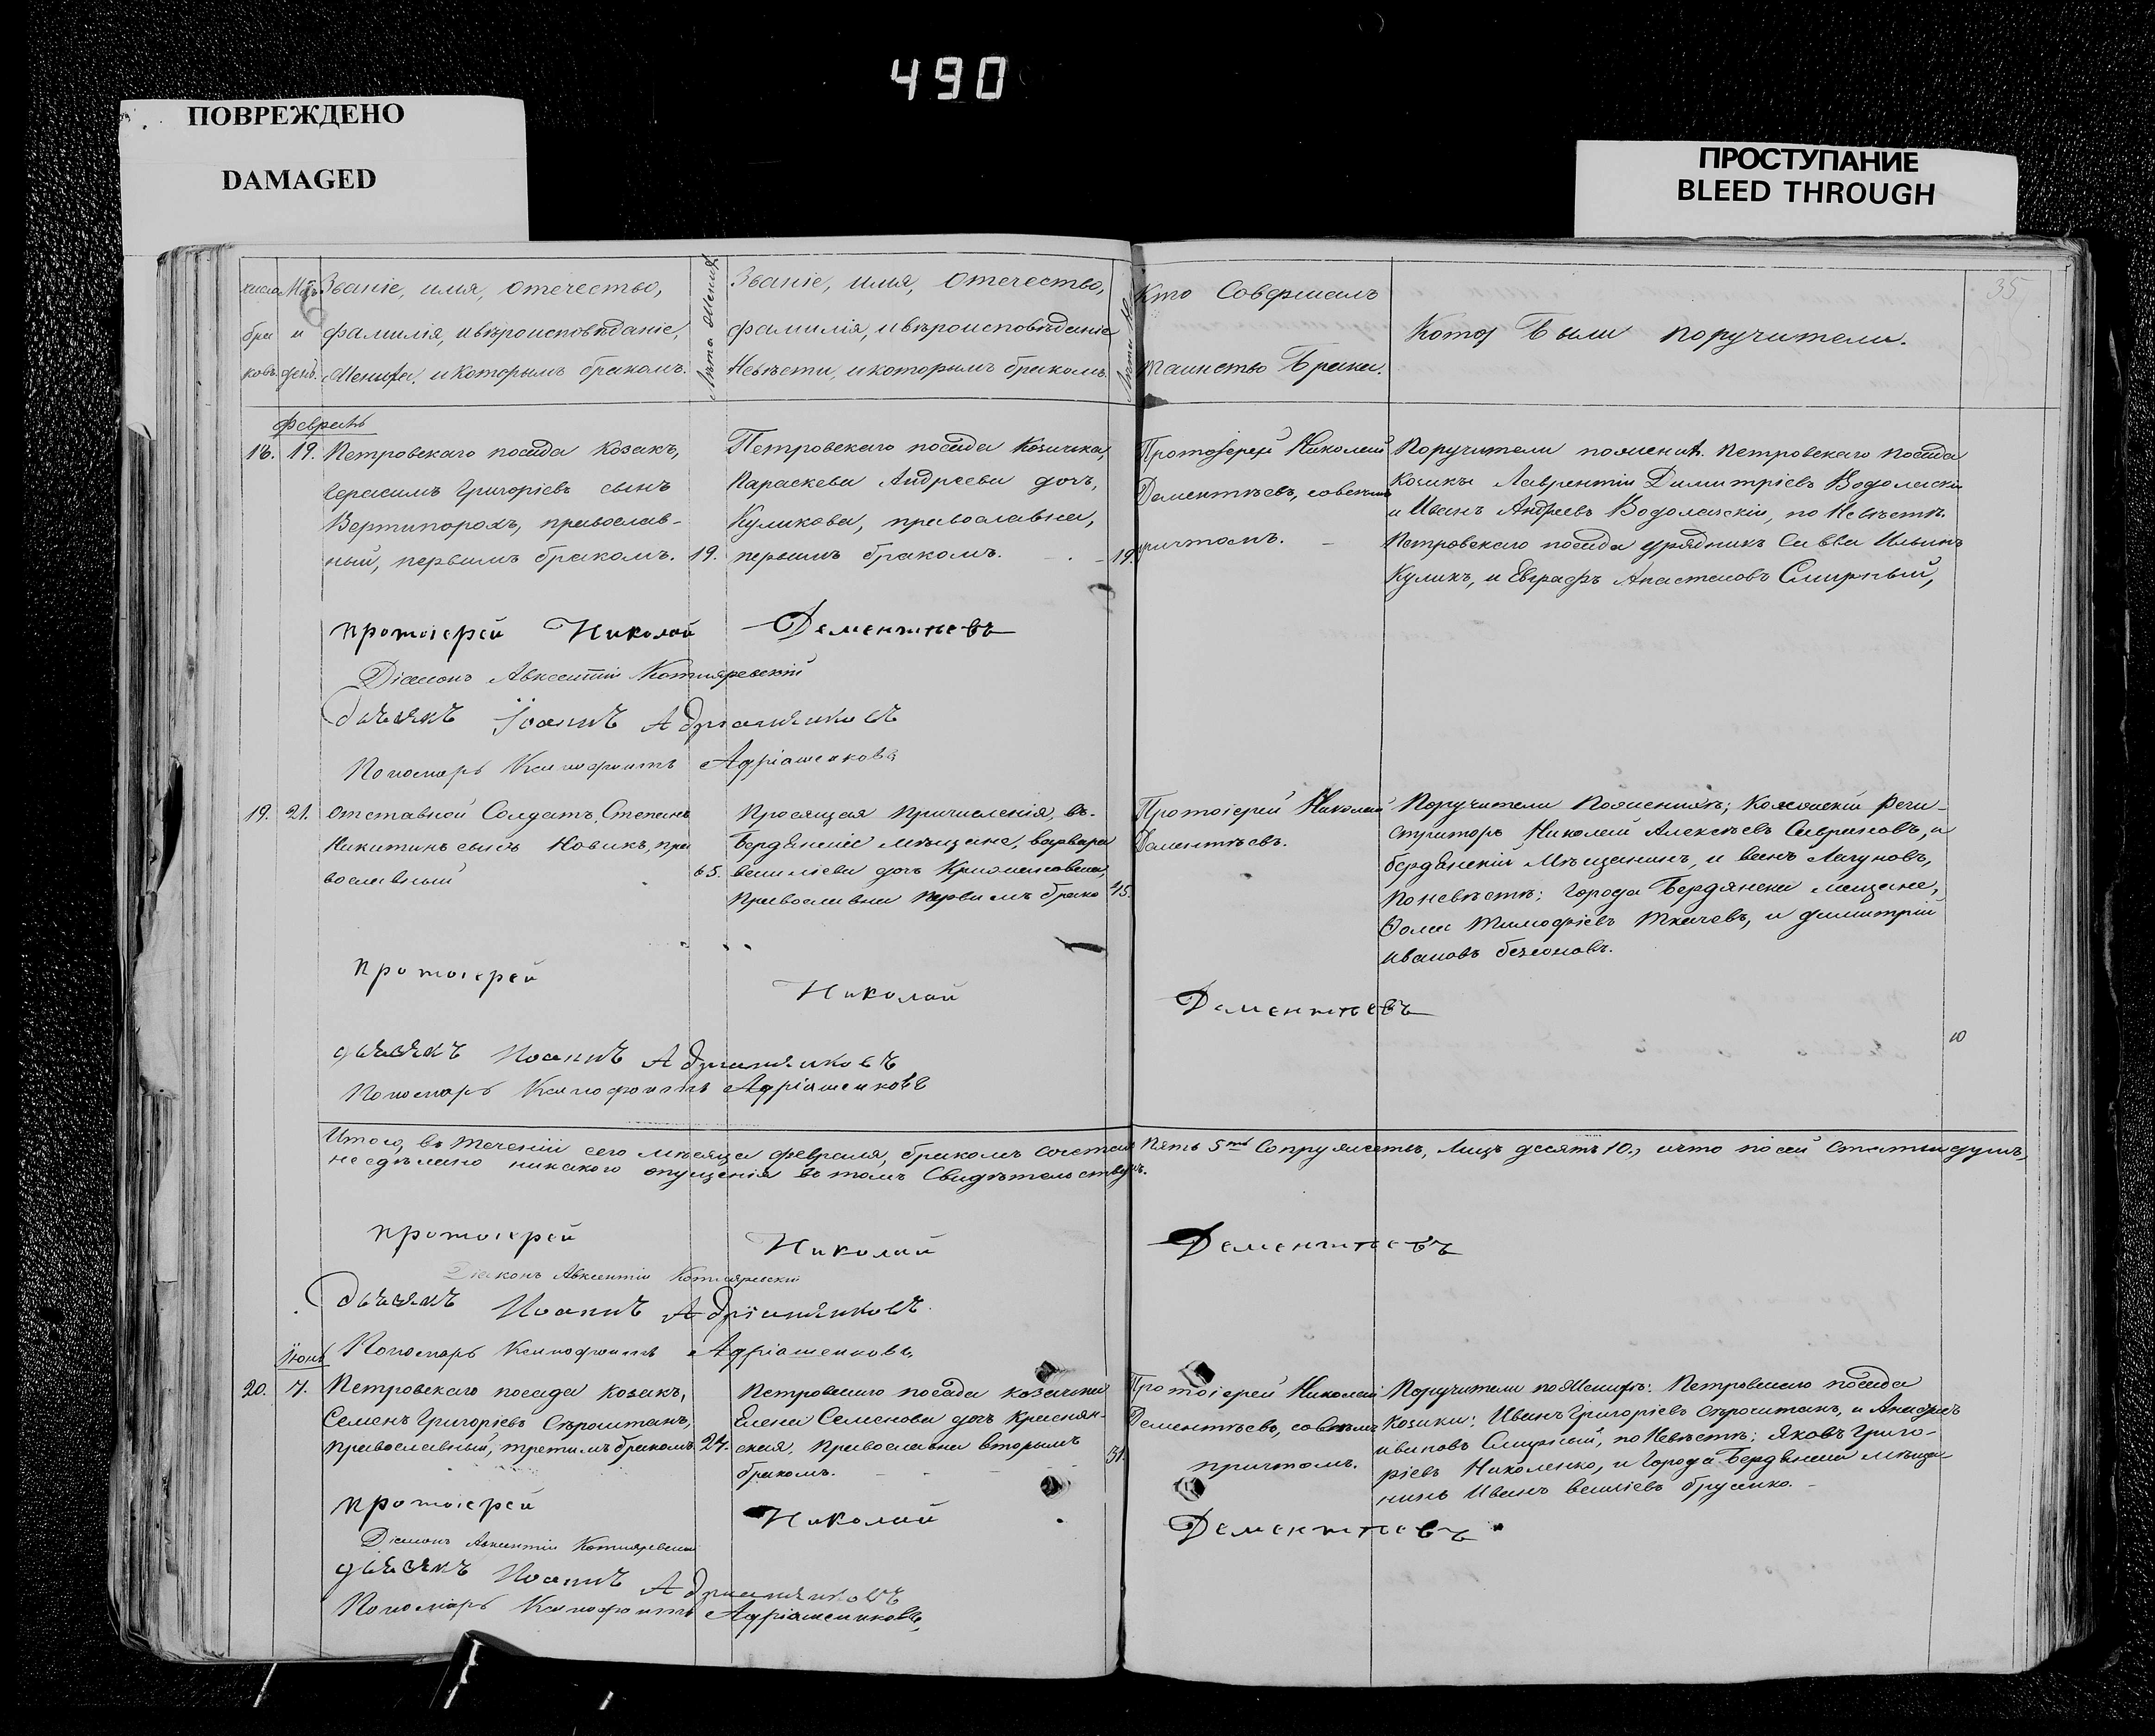 490
ПОВРЕЖДЕНО
DAMAGED
ПРОСТУПАНИЕ
BLEED THROUGH
35
Званіе, имя, отечество,
фамилія, и вѣроисповѣданіе,
Жениха, и которымъ бракомъ.
Лѣта жениха
Званіе, имя, отечество,
фамилія, и вѣроисповѣданіе
Невѣсти, и которымъ бракомъ.
Кто Совершалъ
таинство Брака.
Были поручители.
Февраль
18. 19. Петровскаго посада Козакъ,
Герасимъ Григоріевъ сынъ
Вертипорохъ, православ-
ный, первымъ бракомъ. 19.
Петровскаго посада Козачка,
Параскева Андреева дочь,
Куликова, православна,
первымъ бракомъ. 19.
Протоіерей Николай
Дементьевъ, совсѣмъ
причтомъ.
Поручители по жених. Петровскаго посада
Козаки Лаврентій Димитріевъ Водоласкій
и Иванъ Андреевъ Водоласкій, по Невѣстѣ.
Петровскаго посада урядникъ Савва Ильинъ
Куликъ, и Евграфъ Смирный,
протоіерей Николай Дементьевъ
Діаконъ Авксентій Котляревскій
дьячекъ Іоаннъ Адріашенковъ
Пономарь Ксенофонтъ Адріашенковъ
19. 21. Отставной Солдатъ, Степанъ
Никитинъ сынъ Новикъ, пра
вославный 65.
Просящая причисленія, въ
Бердянскіе мѣщане, варвара
василіева дочь
Православна первымъ брако 45.
Протоіерей Николай
Дементьевъ.
Поручители По женихѣ; Коллежскій Реги-
страторъ Николай Алексѣевъ Савриновъ, и
бердянскій Мѣщанинъ, иванъ Лагуновъ,
По невѣстѣ; города Бердянска мещане,
Ѳома Тимофѣевъ Ткачевъ, и димитрій
ивановъ безсоновъ.
протоіерей Николай Дементьевъ
дьячекъ Иоаннъ Адріашенковъ
Пономарь Ксенофонтъ Адріашенковъ
Итого, въ теченіи сего мѣсяца февраля, бракомъ сочетан Пять 5ть Супружествъ, Лицъ десять 10., и что по сей статьи душъ,
не сдѣлано никакого опущенія въ томъ Свидѣтельствуемъ.
протоіерей Николай Дементьевъ
Діаконъ Авксентій Котляревскій
дьячекъ Иоаннъ Адріашенковъ.
Пономарь Ксенофонтъ Адріашенковъ,
Іюнь
20. 7. Петровскаго посада козакъ,
Семенъ Григоріевъ Сѣроштанъ,
православный, третимъ бракомъ. 27.
Петровскаго посада козачка
Елена Семенова дочь Краснян-
ская, православна вторымъ
бракомъ. 31.
Протоіерей Николай
Дементьевъ, совсѣмъ
причтомъ.
Поручители по Женихѣ: Петровскаго посада
Козаки: Иванъ Григоріевъ Сѣроштанъ, и Андрей
ивановъ Смирный, по Невѣстѣ: Яковъ Григо-
ріевъ Николенко, и города Бердянска мѣща-
нинъ Иванъ василіевъ брусенко.
протоіерей Николай Дементьевъ
Діаконъ Авксентій Котляревскій
дьячекъ Иоаннъ Адріашенковъ
Пономарь Ксенофонтъ Адріашенковъ,